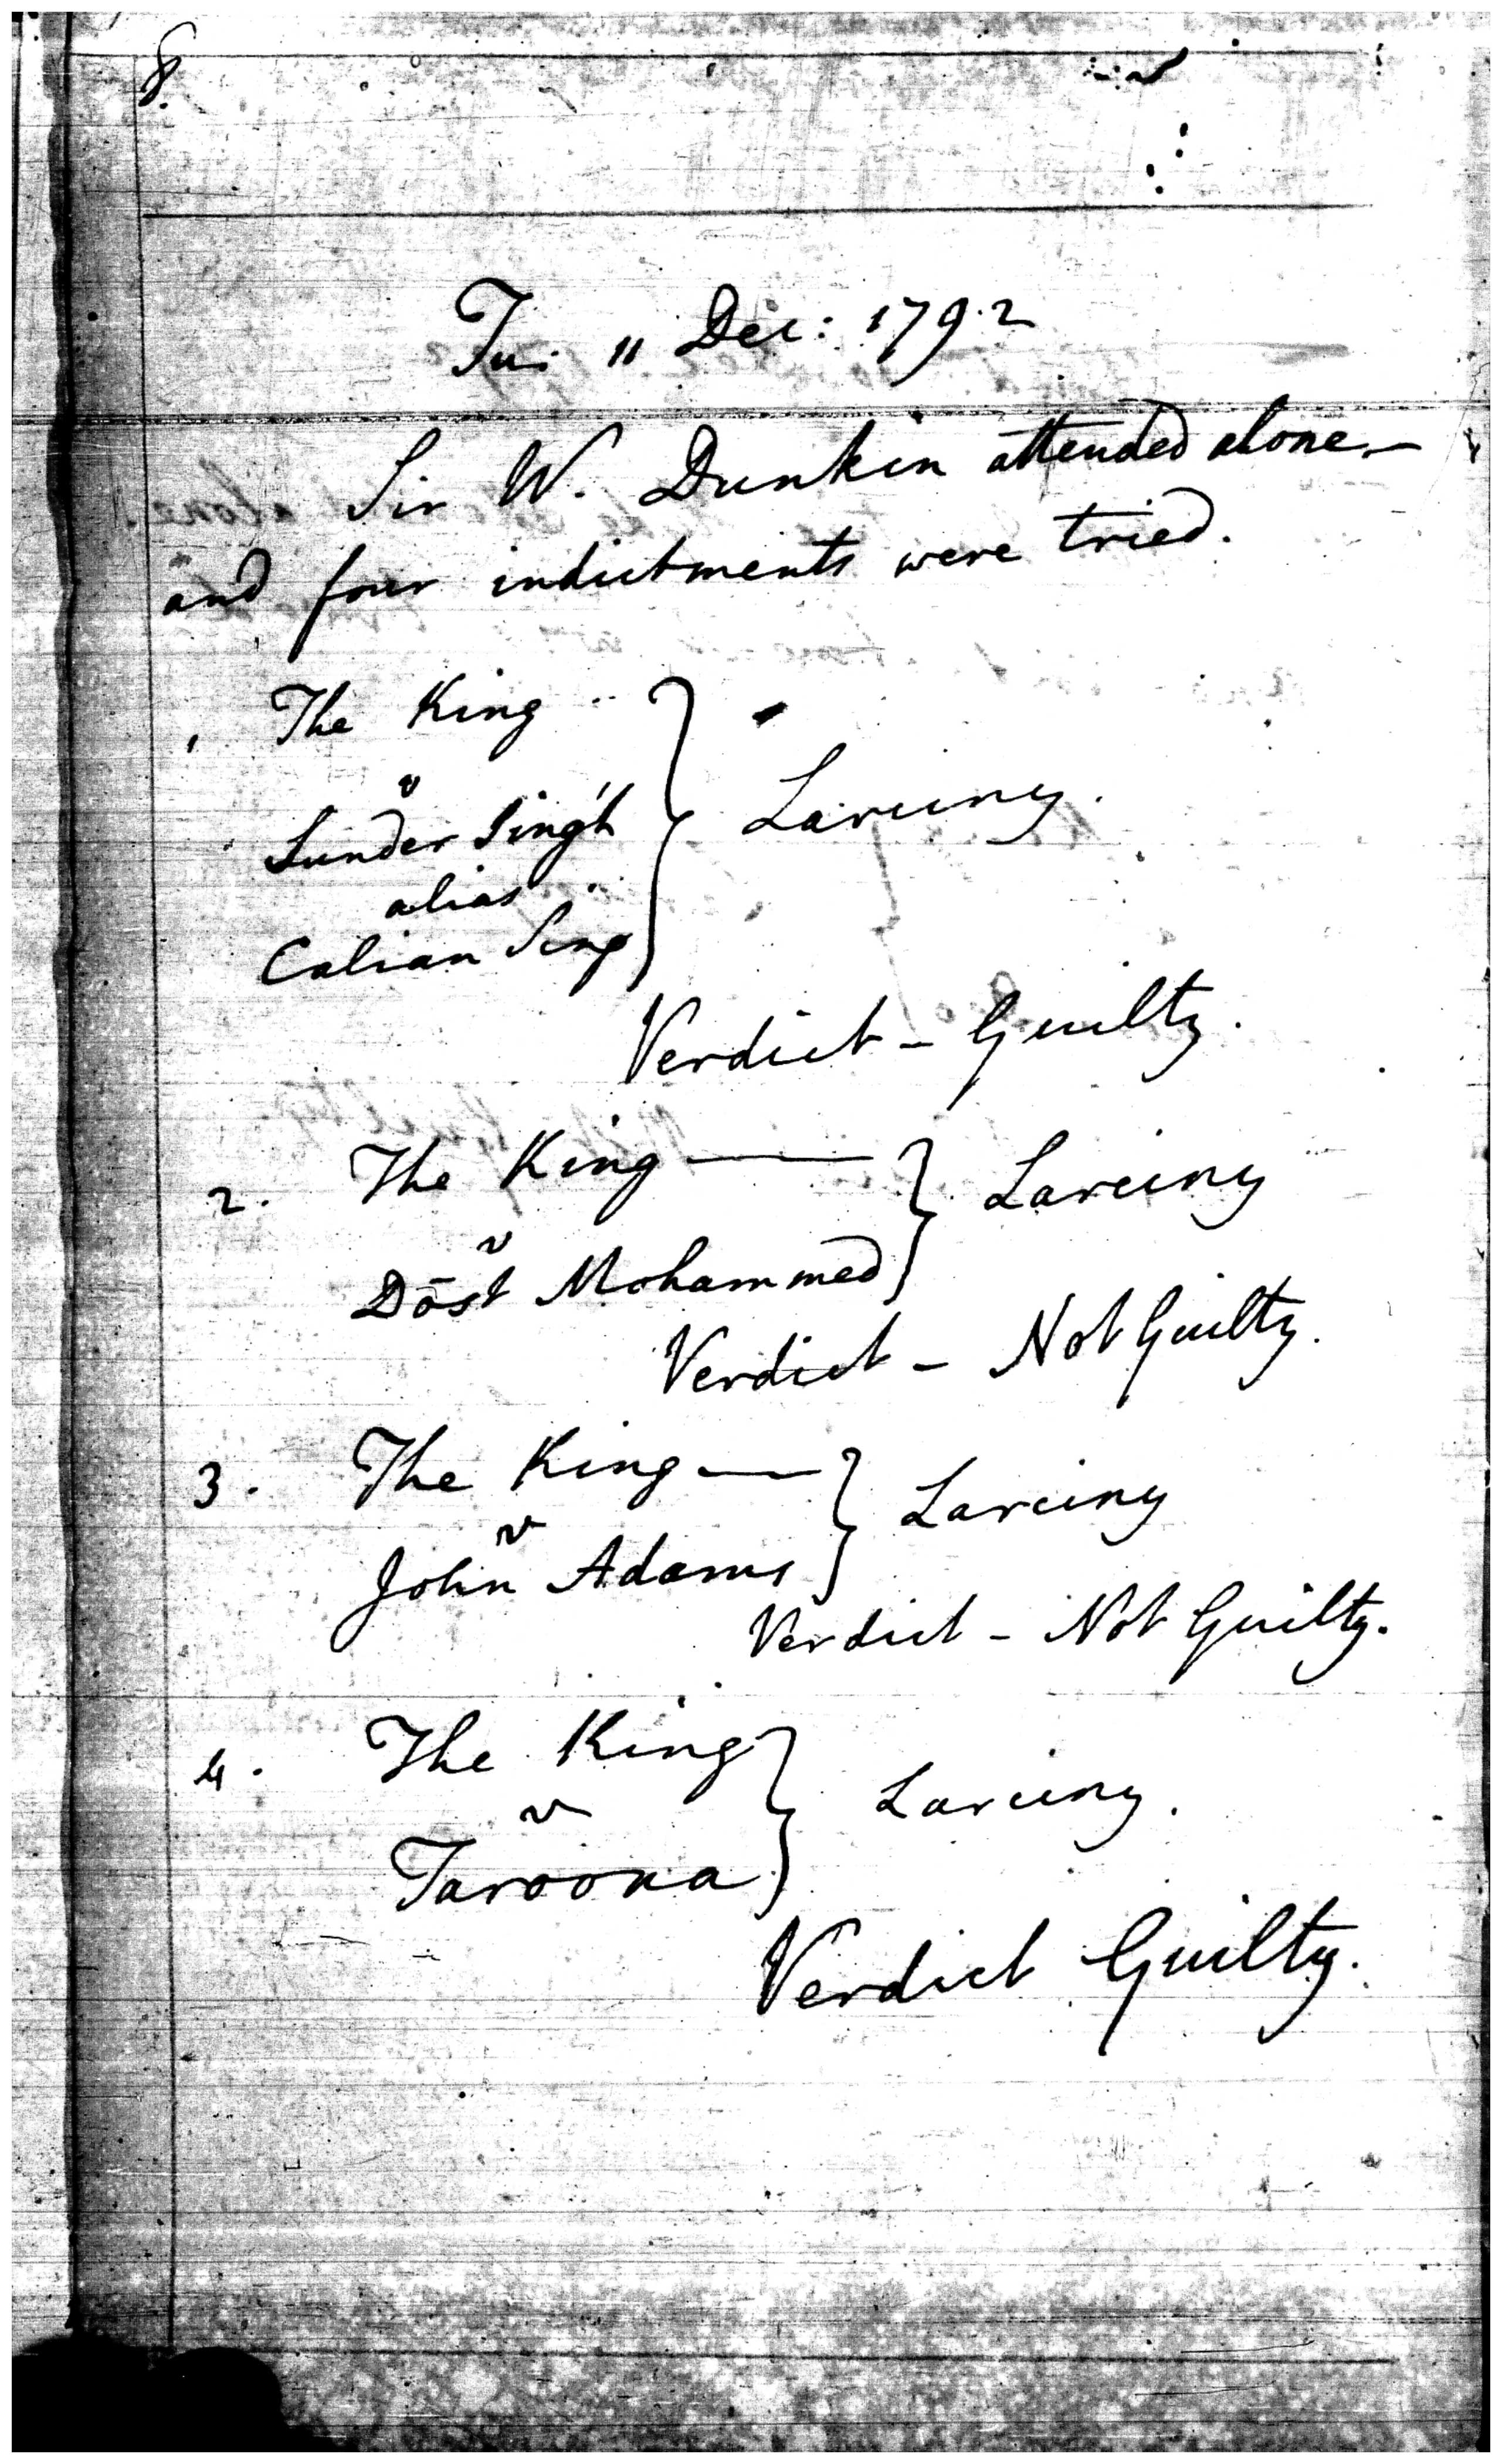 8.
Tu. 11 Dec: 1792
Sir W. Dunkin attended alone—
and four indictments were tried.
1 The King
v
Sunder Sing'h
alias
Calian Sing
} Larciny.
Verdict – Guilty.
2. The King — } Larciny
v
Dōst Mohammed
Verdict – Not Guilty.
3. The King — } Larciny
v
John Adams
Verdict – Not Guilty.
4. The King } Larciny.
v
Taroona
Verdict Guilty.